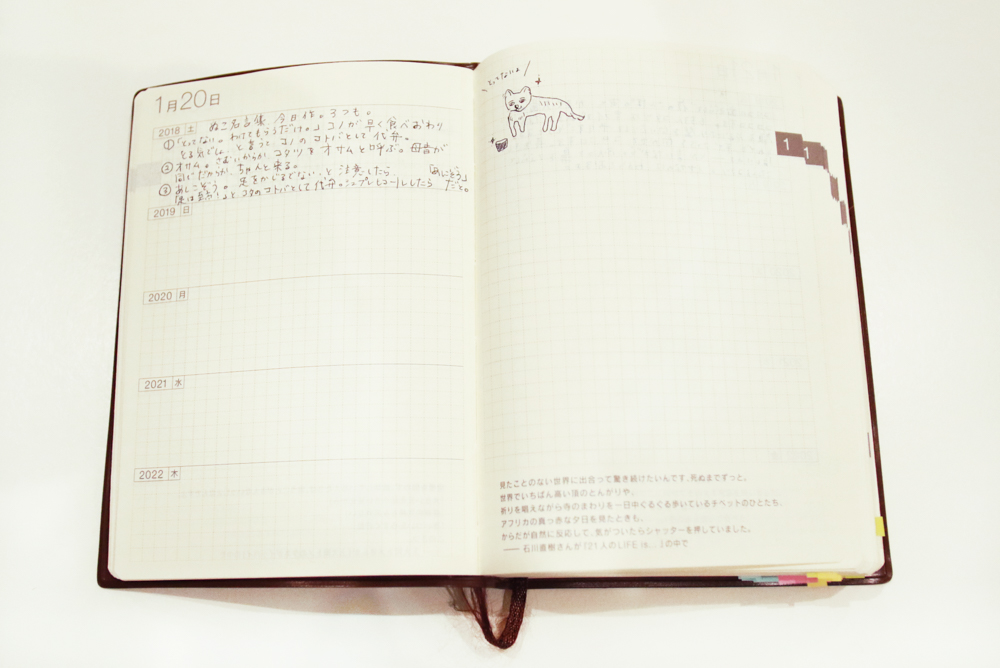 1月20日
2018 土 ぬこ名言集 今日作。3つも。
①「とってない。わけてもらうだけ。」コノが早く食べおわり
とる気でしょ…と言うと、コノのコトバとして代弁。
②オサム。さむいからか、コタツをオサムと呼ぶ。母音が
同じだからか、ちゃんと来る。
③あしこぞう。足をかじるでない、と注意したら、「あしこぞう」
コタのコトバとして代弁。
2019 日
2020 月
2021 水
2022 木
とってないよ
1
1
見たことのない世界に出合って驚き続けたいんです、死ぬまでずっと。
世界でいちばん高い頂のとんがりや、
祈りを唱えながら寺のまわりを一日中ぐるぐる歩いているチベットのひとたち、
アフリカの真っ赤な夕日を見たときも、
からだが自然に反応して、気がついたらシャッターを押していました。
—— 石川直樹さんが『21人のLIFE is...』の中で